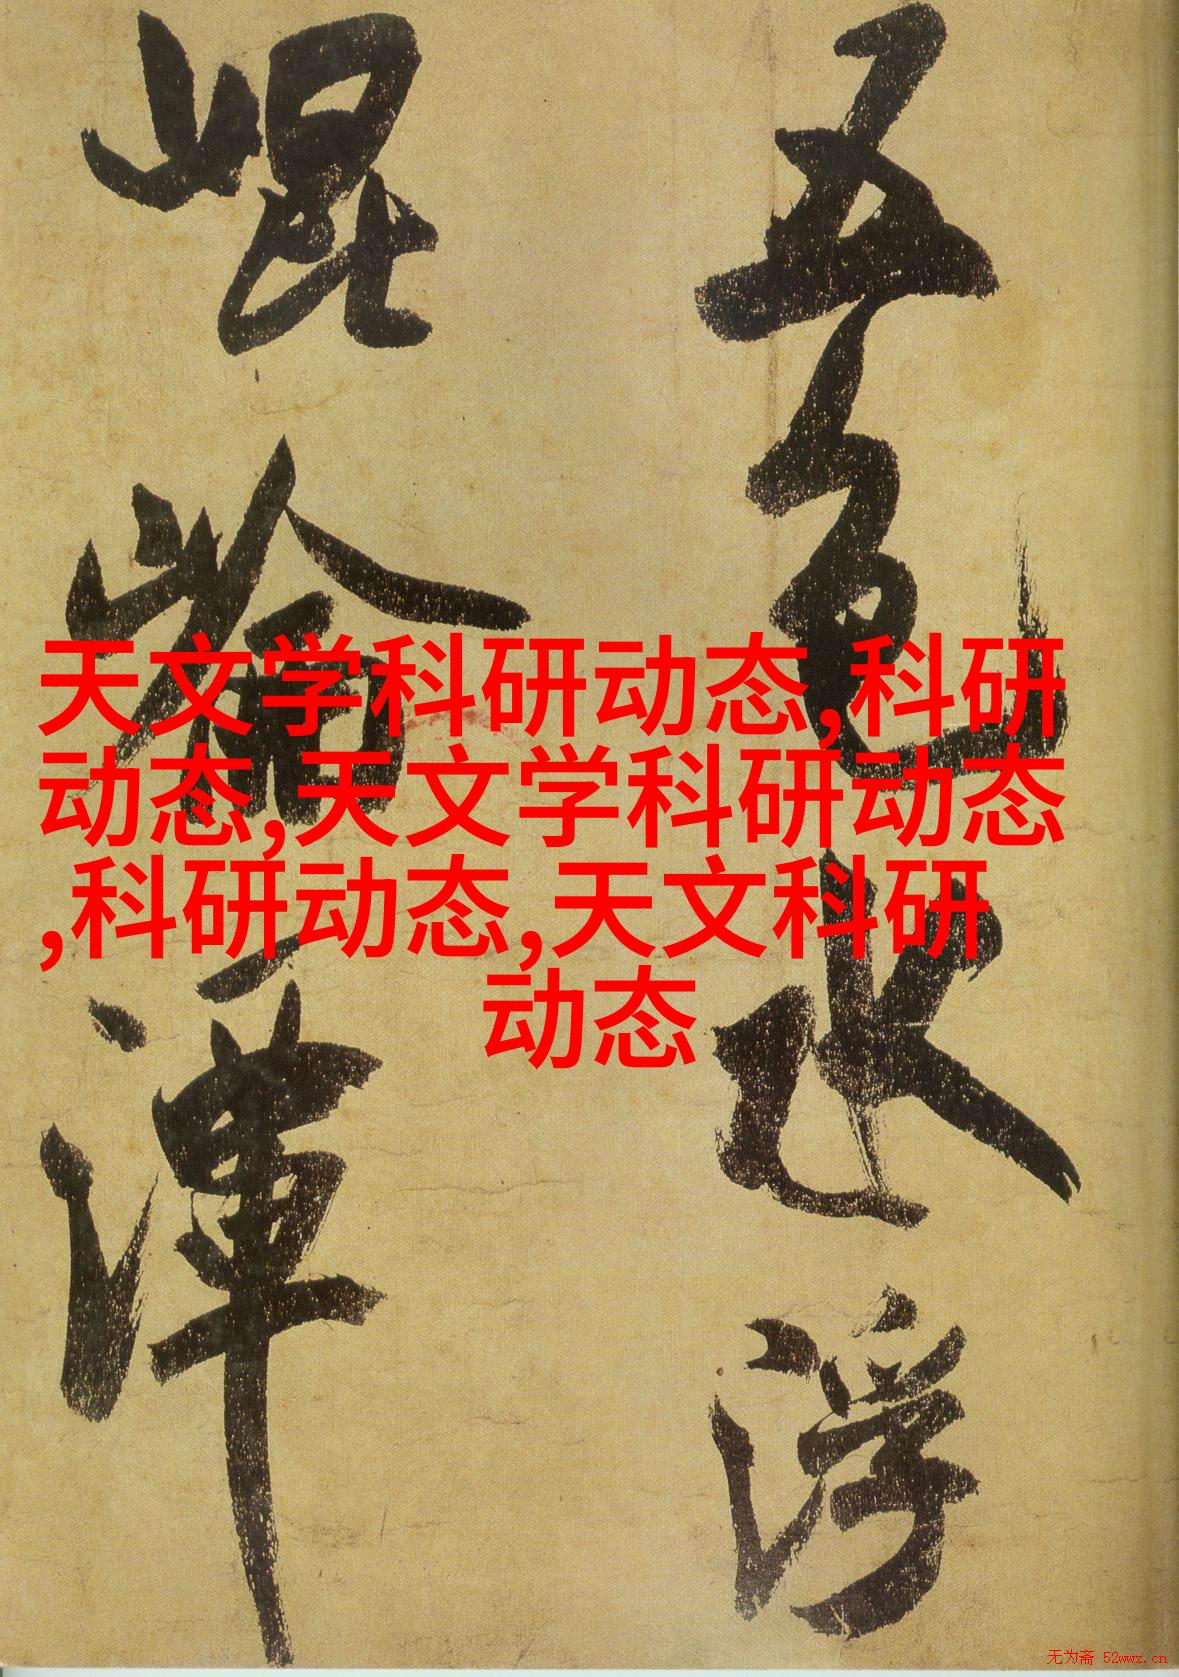 五色水浮
崐崘渾
天文学科研动态,科研
动态,天文学科研动态
,科研动态,天文科研
动态
无为斋 52wwz.cn